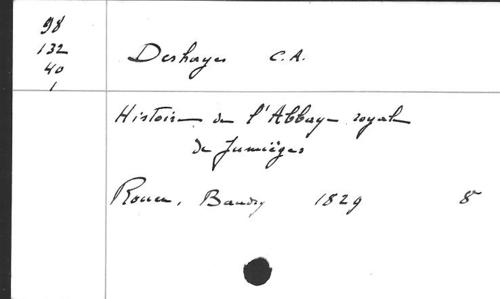 98
132
40
1
Deshayes C.A.
Histoire de l'Abbaye royale
de Jumièges
Rouen, Baudry 1829 8°